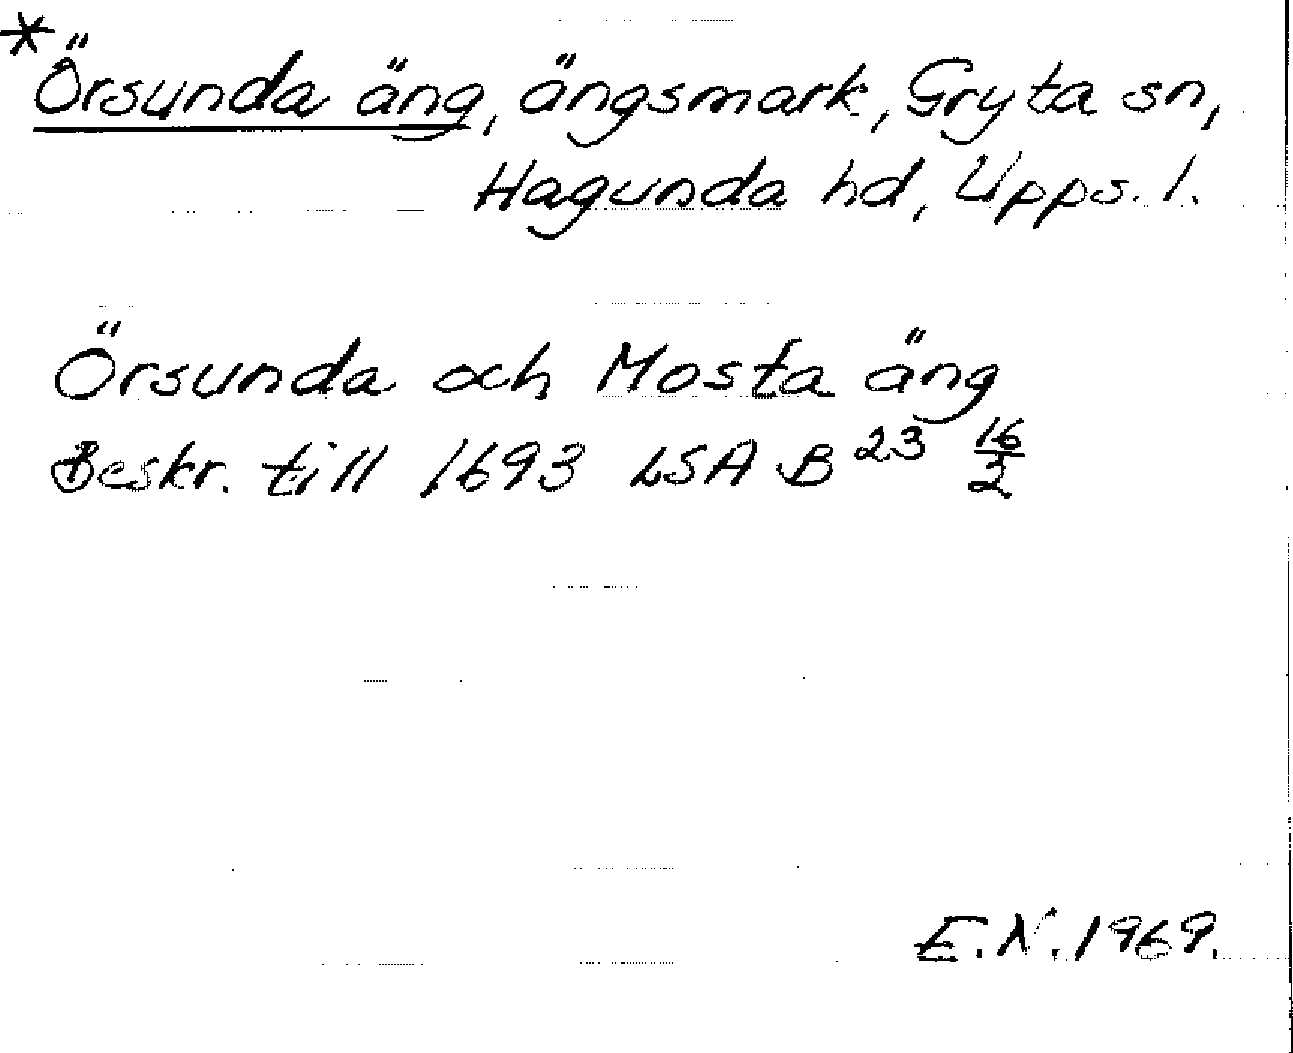 *Örsunda äng, ängsmark, Gryta sn,
Hagunda hd, Upps. l.
Örsunda och Mosta äng
Beskr. till 1693 LSA B 23 16/2
E.N. 1969.